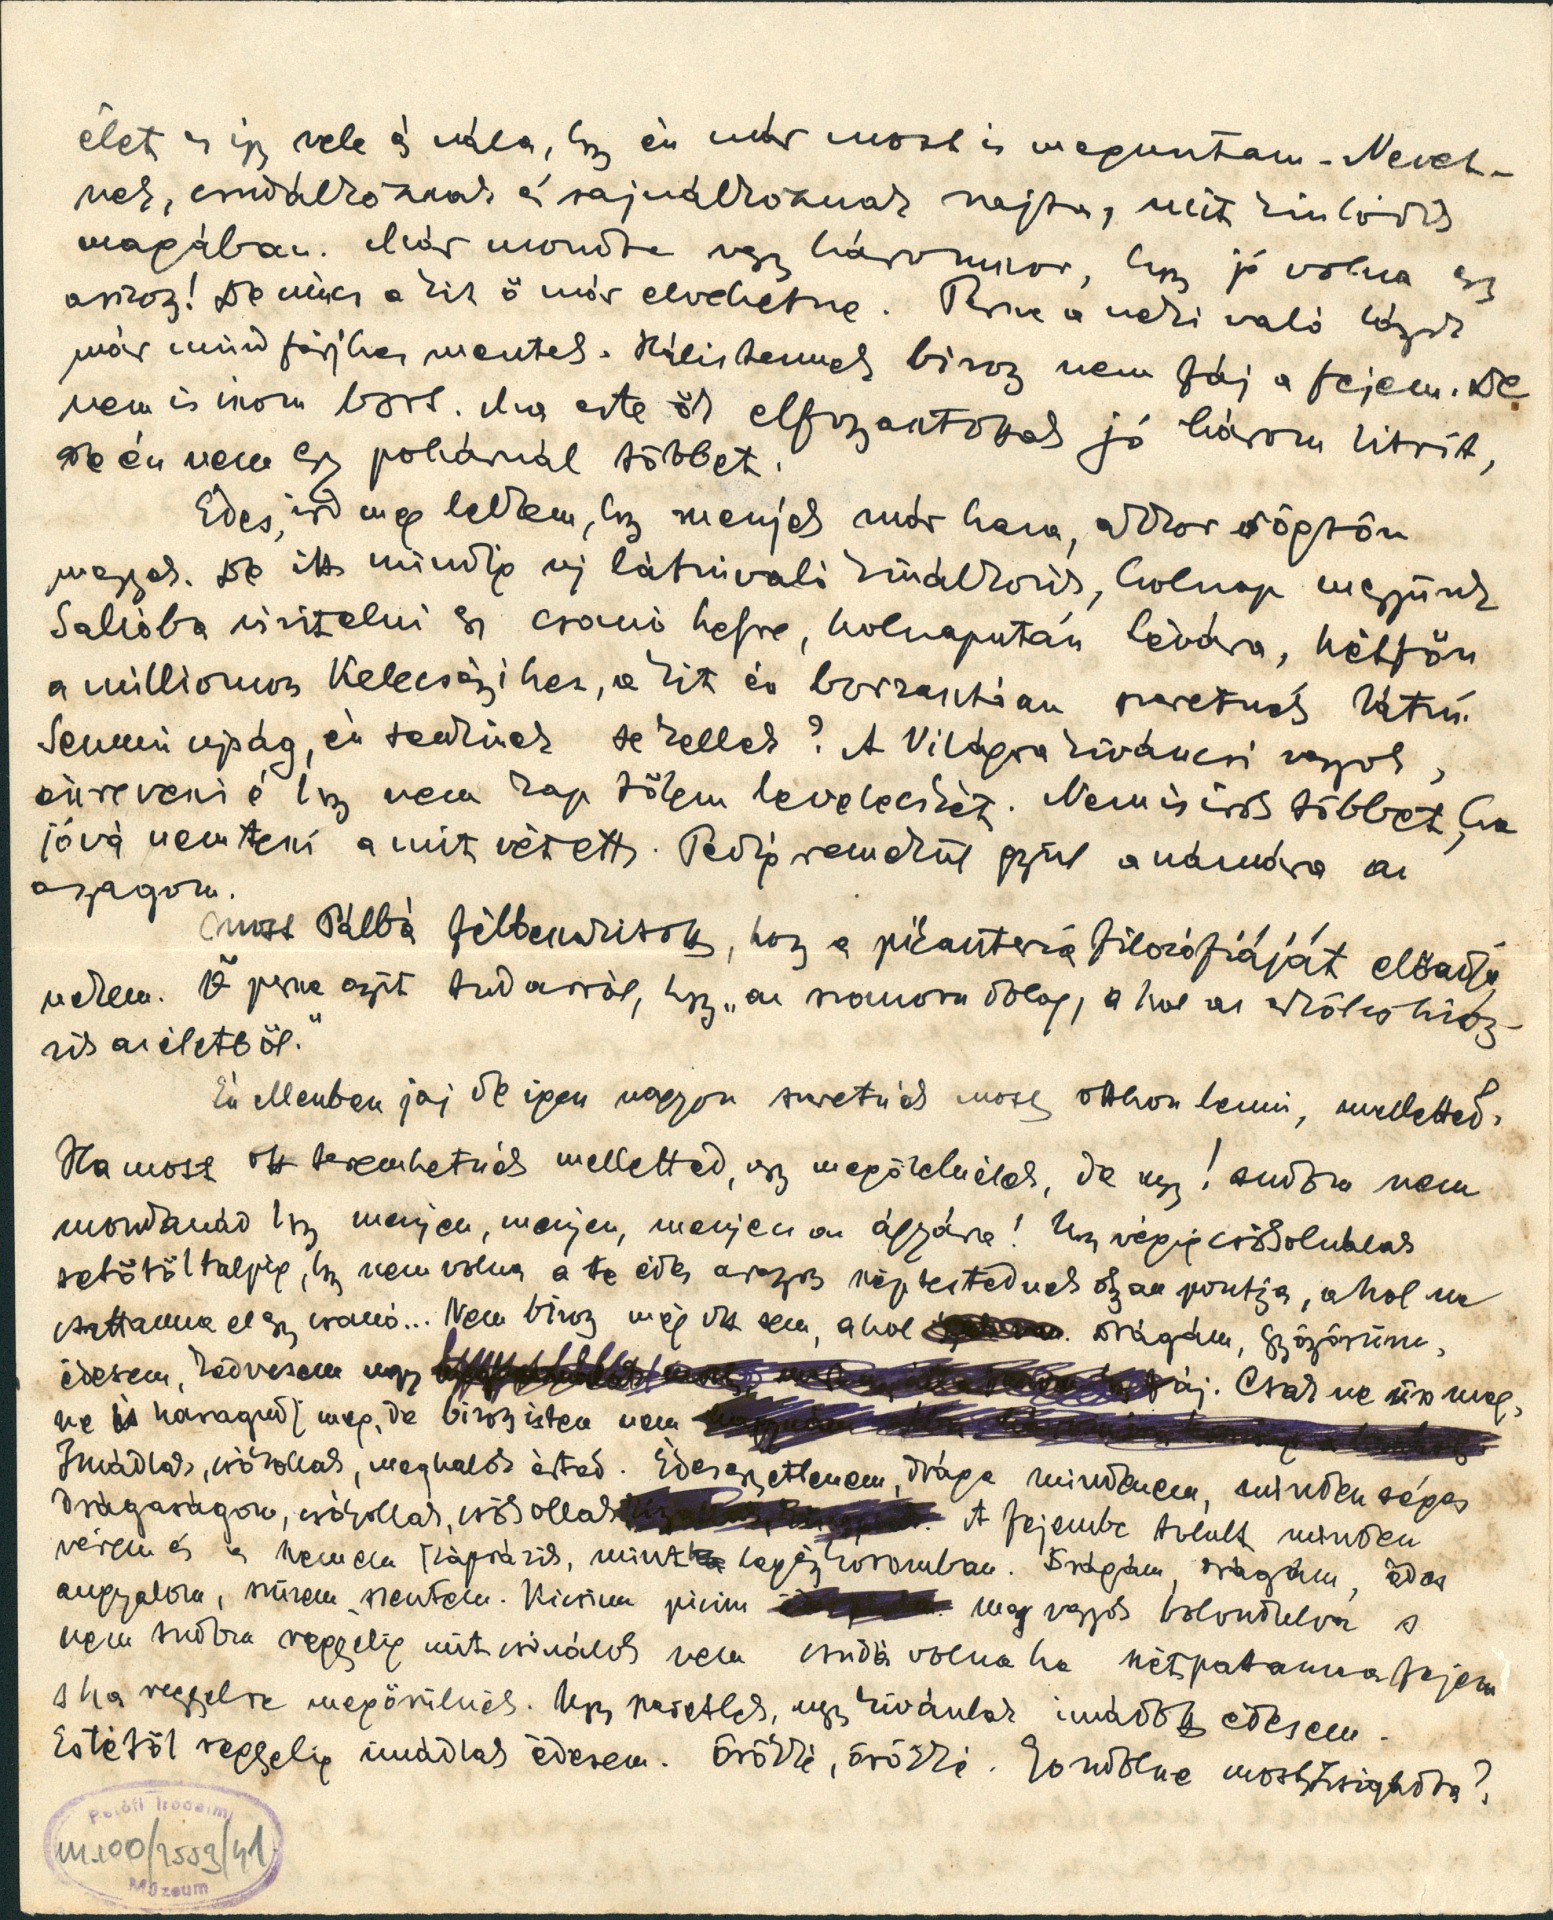 élet és így vele és nála, hogy én már most is meguntam. Nevet-
nek, csudálkoznak és sajnálkoznak rajta, mit kinlódik
magában. Már mondta vagy háromszor, hogy jó volna egy
asszony! De nincs a kit ő már elvehetne. Persze a neki való lányok
már mind férjhez mentek. Hálistennek bizony nem fáj a fejem. De
nem is iszom bort. Ma este ők elfogyasztottak jó három litrit,
de én nem egy pohárnál többet.
Édes, ird meg lelkem, hogy menjek már haza, akkor rögtön
megyek. De itt mindig uj látnivaló kinálkozik, holnap megyünk
Salióba vizitelni egy csomó helyre, holnapután Lévára, hétfőn
a milliomos Kelecsényihez, a kit én borzasztóan szeretnék látni.
Semmi ujság, én senkinek se kellek? A Világra kiváncsi vagyok,
észreveszi é hogy nem kap tőlem levelecskét. Nem is irok többet, ha
jóvá nem teszi a mit vétett. Pedig remekül gyűl a számára az
anyagom.
(most Pálbá félbeszakitott, hogy a pikantéria filozófiáját előadja
nekem. Ő persze azt tudarról, hogy „az szomoru dolog, a hol az erkölcs hiány-
zik az életből."
Én ellenben jaj de igen nagyon szeretnék most otthon lenni, melletted.
Ha most ott teremhetnék melletted, ugy megölelnélek, de ugy! tudom nem
mondanád hogy menjen, menjen, menjen az ágyára! Ugy végig csókolnálak
tetőtől talpig, hogy nem volna a te édes aranyos szép testednek olyan pontja, ahol ne
csattanna el egy csomó... Nem bizony még ott sem, ahol Drágám, gyönyörüm,
édesem, kedvesem ugy fáj. Csak ne üss meg,
ne is haragudj meg, de bizony isten nem
Imádlak, csókollak, meghalok érted. Édes egyetlenem, drága mindenem, minden séges
drágaságom, csókollak, csókollak A fejembe tolult minden
vérem és a szemem káprázik, mint legény koromban. Drágám, drágám, édes
angyalom, szüzem, szentem. Kicsim picim meg vagyok bolondulva s
nem tudom reggelig mit csinálok nem csuda volna ha szétpattanna fejem
s ha reggelre megőrülnék. Ugy szeretlek, ugy kivánlak imádott édesem.
Estétől reggelig imádlak édesem. Örökké, örökké. Gondolsz most Zsigádra?
Petőfi Irodalmi
m.100/2559/41
Múzeum